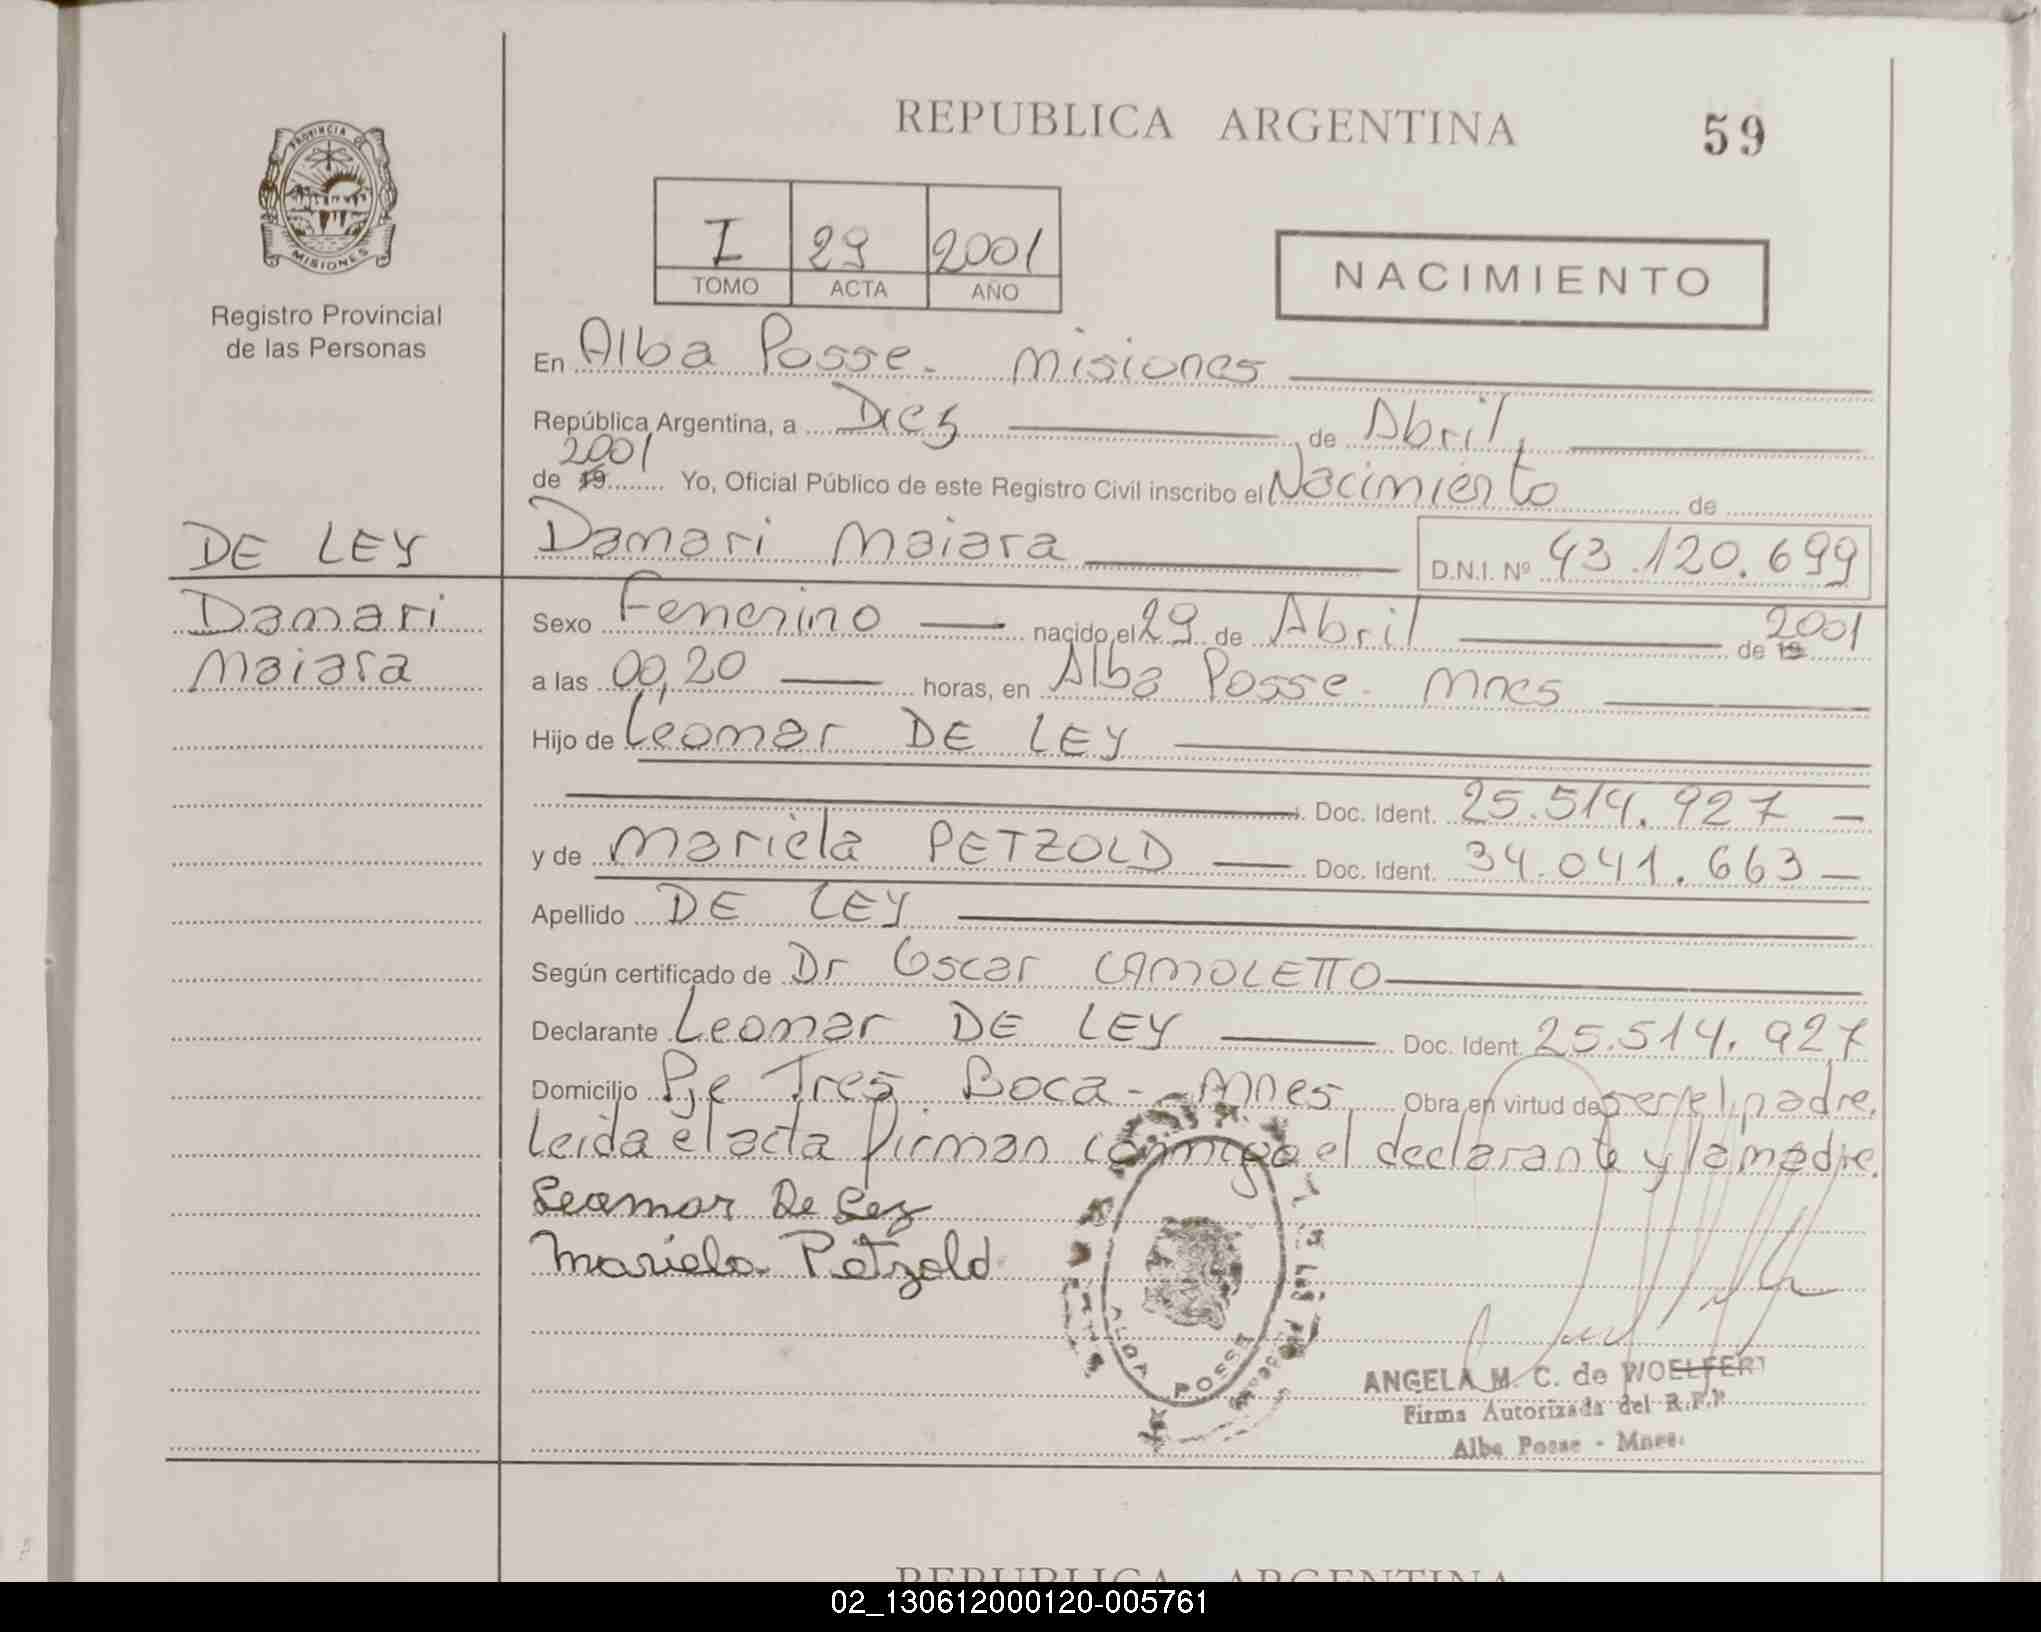 REPUBLICA ARGENTINA
59
PROVINCIA DE
MISIONES
Registro Provincial
de las Personas
I 29 2001
TOMO ACTA AÑO
NACIMIENTO
En Alba Posse. Misiones
República Argentina, a Diez de Abril,
2001
de 19 Yo, Oficial Público de este Registro Civil inscribo el Nacimiento de
DE LEY
Damari Maiara D.N.I. Nº 43.120.699
Damari
Maiara
Sexo Femenino nacido el 29 de Abril de 19 2001
a las 00,20 horas, en Alba Posse. Mnes
Hijo de Leomar DE LEY
Doc. Ident. 25.514.927
y de Mariela PETZOLD Doc. Ident. 34.041.663
Apellido DE LEY
Según certificado de Dr Oscar CAMOLETTO
Declarante Leomar DE LEY Doc. Ident. 25.514.927
Domicilio Pje Tres Boca - Mnes Obra en virtud de ser el padre.
Leida el acta firman conmigo el declarante y la madre.
Leomar De Ley
Mariela Petzold
ALBA POSSE
ANGELA M. C. de WOELFERT
Firma Autorizada del R.P.P.
Alba Posse - Mnes.
REPUBLICA ARGENTINA
02_130612000120-005761